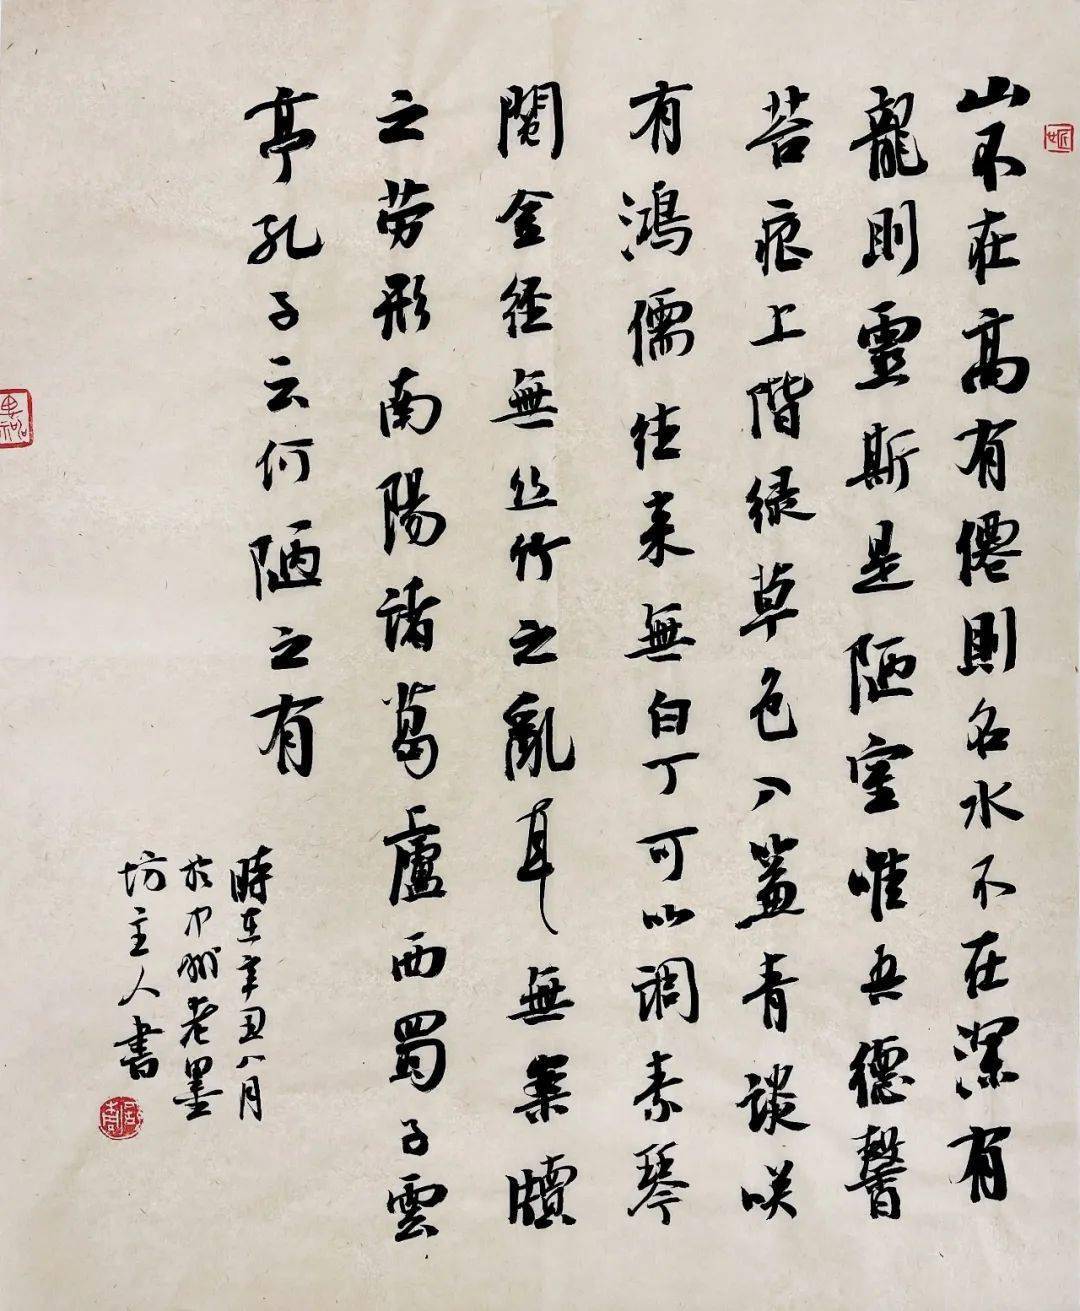 山不在高有僊則名水不在深有
龍則靈斯是陋室唯吾德馨
苔痕上階緑草色入簾青談咲
有鴻儒往来無白丁可以調素琴
閱金經無丝竹之亂耳無案牘
之劳形南陽諸葛廬西蜀子雲
亭孔子云何陋之有
時在辛丑八月
於中州老墨
坊主人書